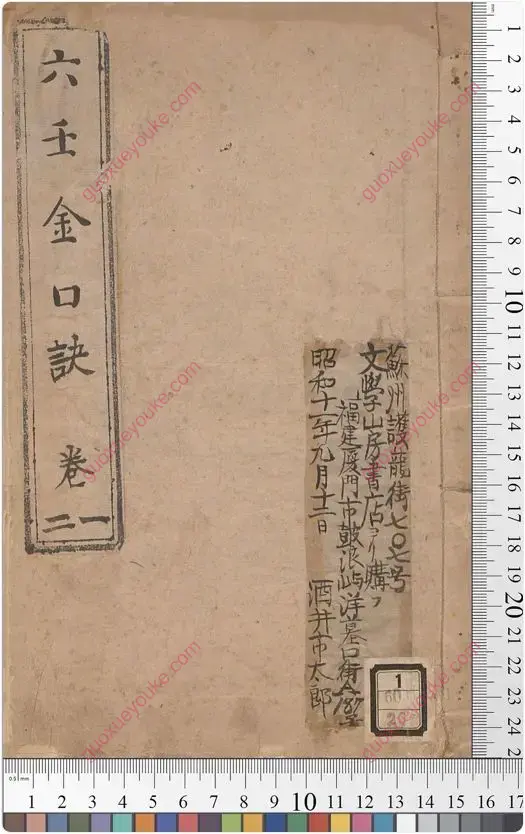 六壬金口訣 卷
二一
蘇州護龍街七〇七号
文學山房書店ヨリ購フ
福建厦門市鼓浪屿洋墓口街
昭和十一年九月十二日 酒井市太郎
1
60
2
guoxueyouke.com
guoxueyouke.com
guoxueyouke.com
guoxueyouke.com
guoxueyouke.com
guoxueyouke.com
mm
1
2
3
4
5
6
7
8
9
10
11
12
13
14
15
16
17
18
19
20
21
22
23
24
2
0.5mm
1 2 3 4 5 6 7 8 9 10 11 12 13 14 15 16 17